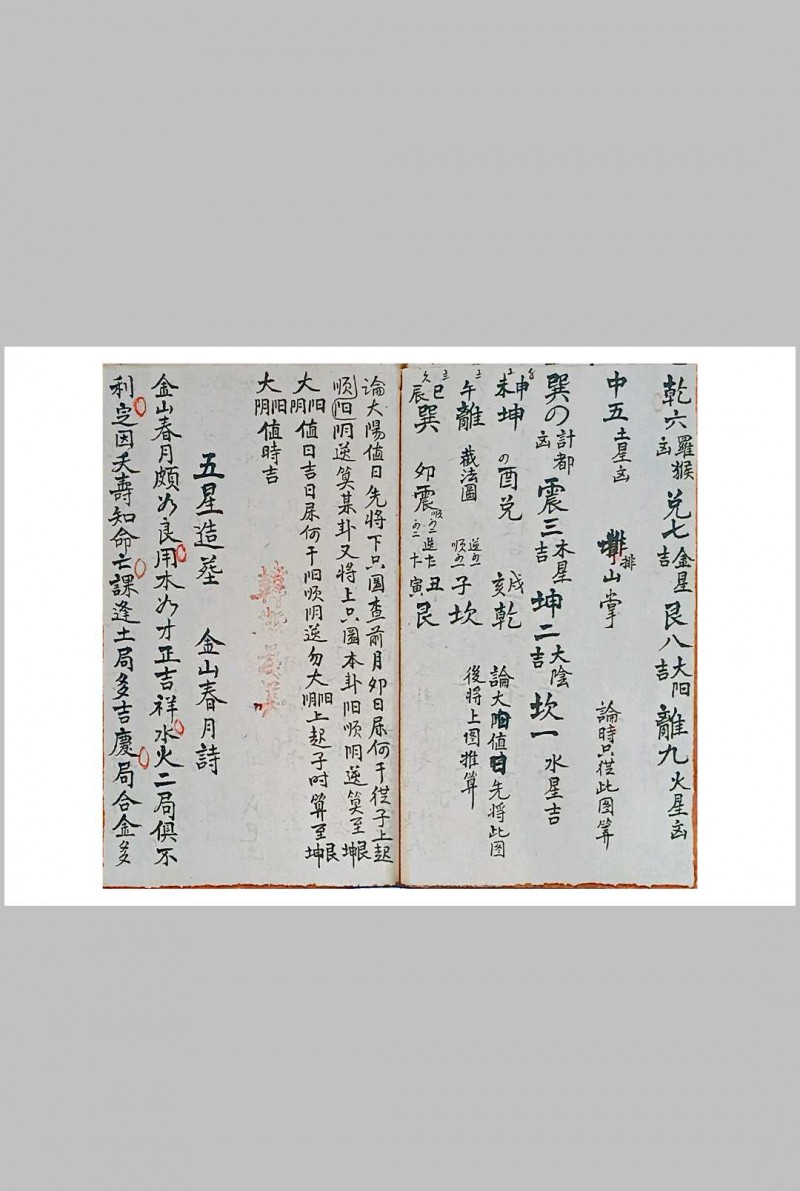 乾六羅猴凶 兌七金星吉 艮八太阳吉 離九火星凶
中五土星凶 排山掌 論時只從此图算
巽の計都凶 震三木星吉 坤二太陰吉 坎一水星吉
申未坤 の酉兌 戌亥乾 論大阳值日先將此图
午離 裁法圖 逆 順 子坎 後將上图推算
巳辰巽 卯震 丑寅艮
論大陽值日先將下只圖查前月卯日屎何干從子上起
順阳阴逆算某卦又將上只圖本卦阳順阴逆算至艮坤
大阳阴值日吉日屎何干阳順阴逆勿大阳阴上起子时算至艮坤
大阳阴值時吉
五星造墓 金山春月詩
金山春月頗为良用木为才正吉祥水火二局俱不
利定因夭壽知命亡課逢土局多吉慶局合金多